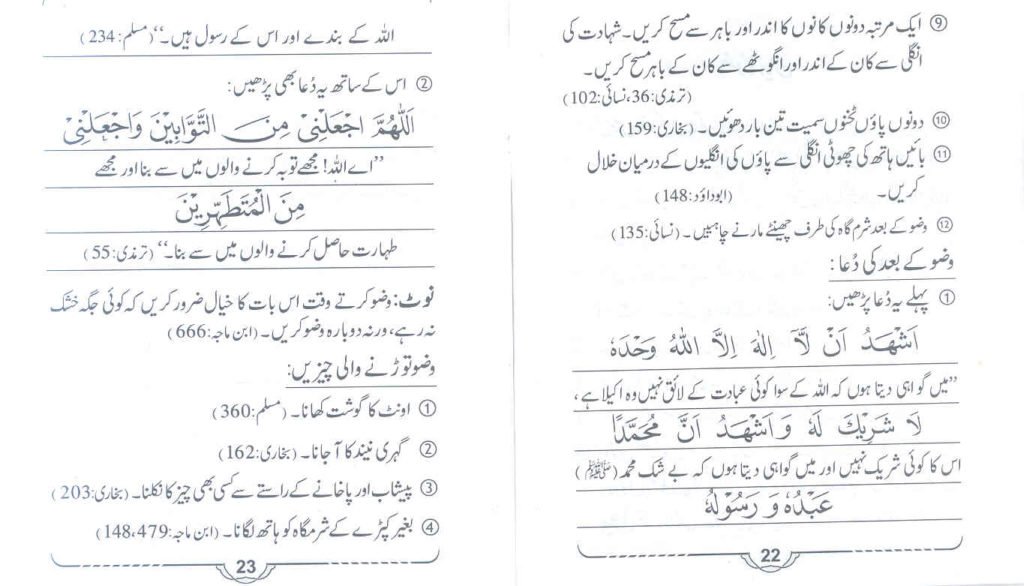 ⑨ ایک مرتبہ دونوں کانوں کا اندر اور باہر سے مسح کریں۔ شہادت کی
انگلی سے کان کے اندر اور انگوٹھے سے کان کے باہر مسح کریں۔
(ترمذی:36، نسائی:102)
⑩ دونوں پاؤں ٹخنوں سمیت تین بار دھوئیں۔ (بخاری:159)
⑪ بائیں ہاتھ کی چھوٹی انگلی سے پاؤں کی انگلیوں کے درمیان خلال
کریں۔ (ابوداؤد:148)
⑫ وضو کے بعد شرم گاہ کی طرف چھینٹے مارنے چاہییں۔ (نسائی:135)
وضو کے بعد کی دُعا:
① پہلے یہ دُعا پڑھیں:
اَشْهَدُ اَنْ لَّآ اِلٰهَ اِلَّا اللّٰهُ وَحْدَهٗ
”میں گواہی دیتا ہوں کہ اللہ کے سوا کوئی عبادت کے لائق نہیں وہ اکیلا ہے،
لَا شَرِيْكَ لَهٗ وَاَشْهَدُ اَنَّ مُحَمَّدًا
اس کا کوئی شریک نہیں اور میں گواہی دیتا ہوں کہ بے شک محمد (ﷺ)
عَبْدُهٗ وَ رَسُوْلُهٗ
22
اللہ کے بندے اور اس کے رسول ہیں۔“ (مسلم:234)
② اس کے ساتھ یہ دُعا بھی پڑھیں:
اَللّٰهُمَّ اجْعَلْنِىْ مِنَ التَّوَّابِيْنَ وَاجْعَلْنِىْ
”اے اللہ! مجھے توبہ کرنے والوں میں سے بنا اور مجھے
مِنَ الْمُتَطَهِّرِيْنَ
طہارت حاصل کرنے والوں میں سے بنا۔“ (ترمذی:55)
نوٹ: وضو کرتے وقت اس بات کا خیال ضرور کریں کہ کوئی جگہ خشک
نہ رہے، ورنہ دوبارہ وضو کریں۔ (ابن ماجہ:666)
وضو توڑنے والی چیزیں:
① اونٹ کا گوشت کھانا۔ (مسلم:360)
② گہری نیند کا آ جانا۔ (بخاری:162)
③ پیشاب اور پاخانے کے راستے سے کسی بھی چیز کا نکلنا۔ (بخاری:203)
④ بغیر کپڑے کے شرمگاہ کو ہاتھ لگانا۔ (ابن ماجہ:148،479)
23